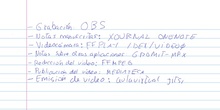 - Grabación OBS
- Notas manuscritas: XOURNAL ONENOTE
- Videocámara: FFPLAY /DEV/VIDEO0
- Notas sobre otras aplicaciones: GROMIT-MPX
- Reducción del video: FFMPEG
- Publicación del video: MEDIATECA
- Emisión de video: audiovisual gifs,